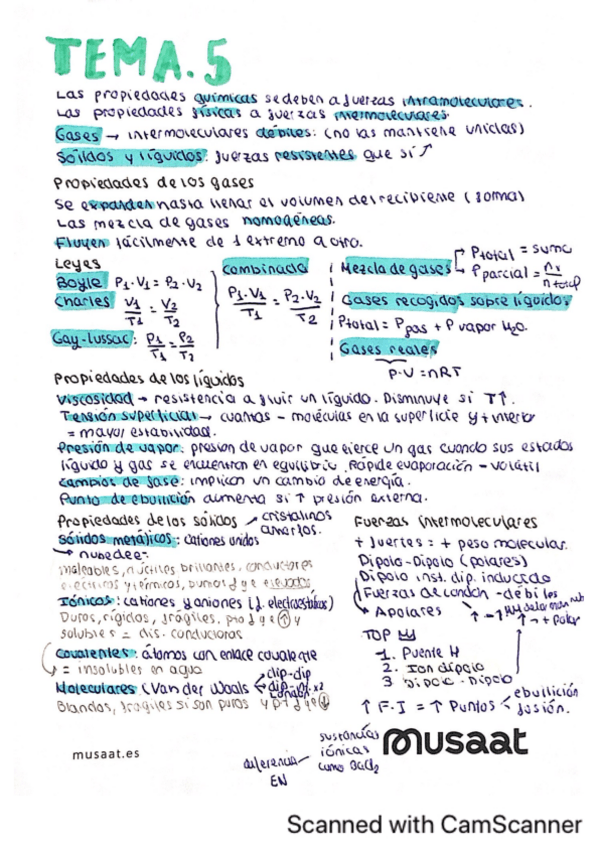 TEMA.5
Las propiedades químicas se deben a fuerzas intramoleculares.
Las propiedades físicas a fuerzas intermoleculares.
Gases → intermoleculares débiles: (no las mantiene unidas)
Sólidos y líquidos: fuerzas resistentes que sí ↑
Propiedades de los gases
Se expanden hasta llenar el volumen del recibiente (forma)
Las mezcla de gases homogéneas.
Fluyen fácilmente de 1 extremo a otro.
Leyes
Boyle P1·V1 = P2·V2
Charles V1/T1 = V2/T2
Gay-Lussac: P1/T1 = P2/T2
Combinada
P1·V1/T1 = P2·V2/T2
Mezcla de gases → Ptotal = suma
→ Pparcial = nx/n total
Gases recogidos sobre líquidos
Ptotal = Pgas + P vapor H2O.
Gases reales
P·V = nRT
Propiedades de los líquidos
Viscosidad → resistencia a fluir un líquido. Disminuye si T↑.
Tensión superficial → cuantas - moléculas en la superficie y + interior
= mayor estabilidad.
Presión de vapor: presion de vapor que ejerce un gas cuando sus estados
líquido y gas se encuentran en equilibrio. Rápide evaporación - volátil
Cambios de fase: implican un cambio de energía.
Punto de ebullición aumenta si ↑ presión externa.
Propiedades de los sólidos → cristalinos
amorfos.
Sólidos metálicos: cationes unidos
→ nube de e-
maleables, dúctiles brillantes, conductores
eléctricos y térmicos, puntos f y e elevados
Iónicos: cationes y aniones (f. electroestáticas)
Duros, rígidos, frágiles, pto f y e ↑ y
solubles = dis. conductoras
Covalentes: átomos con enlace covalente
= insolubles en agua
Moleculares (Van der Waals
dip-dip
London
Blandos, frágiles si son puros y p f y e
Fuerzas intermoleculares
+ fuertes = + peso molecular.
Dipolo-Dipolo (polares)
Dipolo inst. dip. inducido
Fuerzas de London - débiles
→ Apolares
↑ → + polar
TOP
1. Puente H
2. Ion dipolo
3 Dipolo - Dipolo
↑ F.I = ↑ Puntos
ebullición
fusión.
sustancias
iónicas
como BaCl2
diferencia
EN
musaat.es
musaat
Scanned with CamScanner